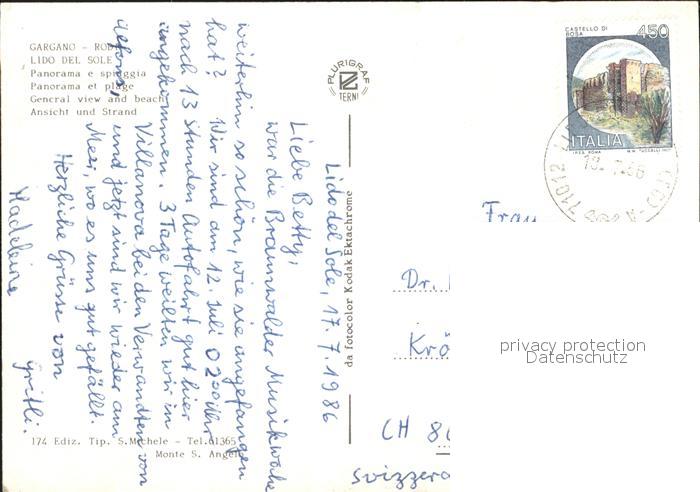 GARGANO - RODI
LIDO DEL SOLE
Panorama e spiaggia
Panorama et plage
General view and beach
Ansicht und Strand
PLURIGRAF
TERNI
da fotocolor Kodak Ektachrome
174 Ediz. Tip. S.Michele - Tel.61365
Monte S. Angelo
Lido del Sole, 17.7.1986
Liebe Betty,
war die Braunwalder Musikwoche
weiterhin so schön, wie sie angefangen
hat? Wir sind am 12. Juli 02⁰⁰ Uhr
nach 13 Stunden Autofahrt gut hier
angekommen. 3 Tage weilten wir in
Villanova bei den Verwandten von
Alfons, und jetzt sind wir wieder am
Meer, wo es uns gut gefällt.
Herzliche Grüsse von
Madeleine
Gritli.
CASTELLO DI
BOSA
450
ITALIA
I.P.Z.S. ROMA
71012
Frau
Dr.
Krö
CH 86
Svizzera
privacy protection
Datenschutz